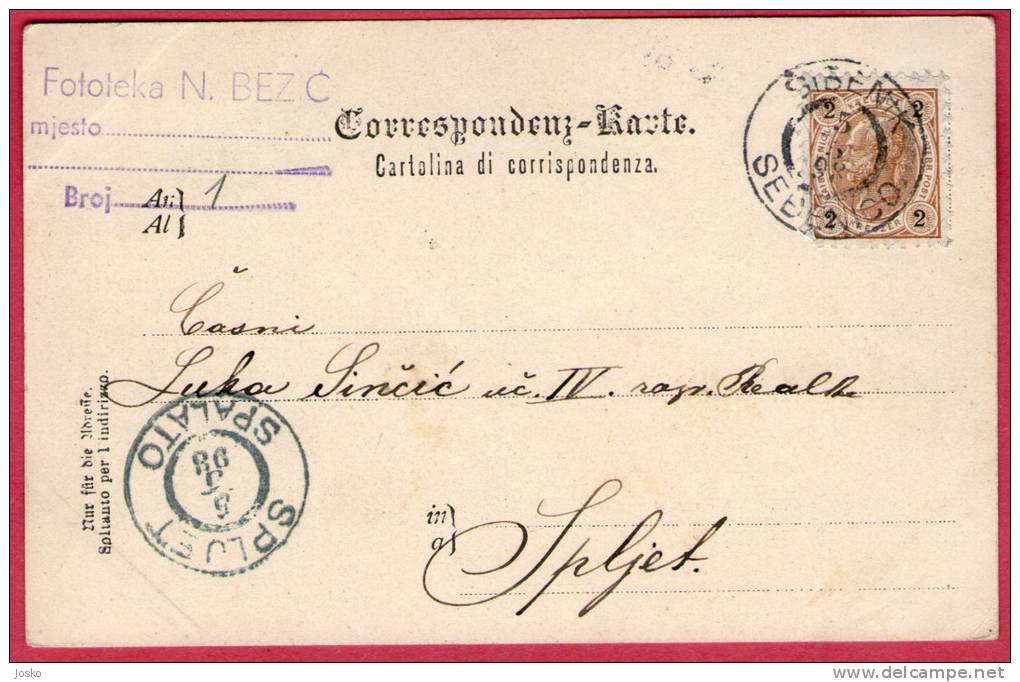 Fototeka N. BEZIĆ
mjesto
Broj 1
Correspondenz-Karte.
Cartolina di corrispondenza.
An
Al
ŠIBENIK
SEBENICO
2 2
2 2
Časni
Luka Sinčić uč. IV. razr. Realk
Nur für die Adresse.
Soltanto per l'indirizzo.
SPLJET
SPALATO
5/5
98
in
a
Spljet.
Josko
www.delcampe.net